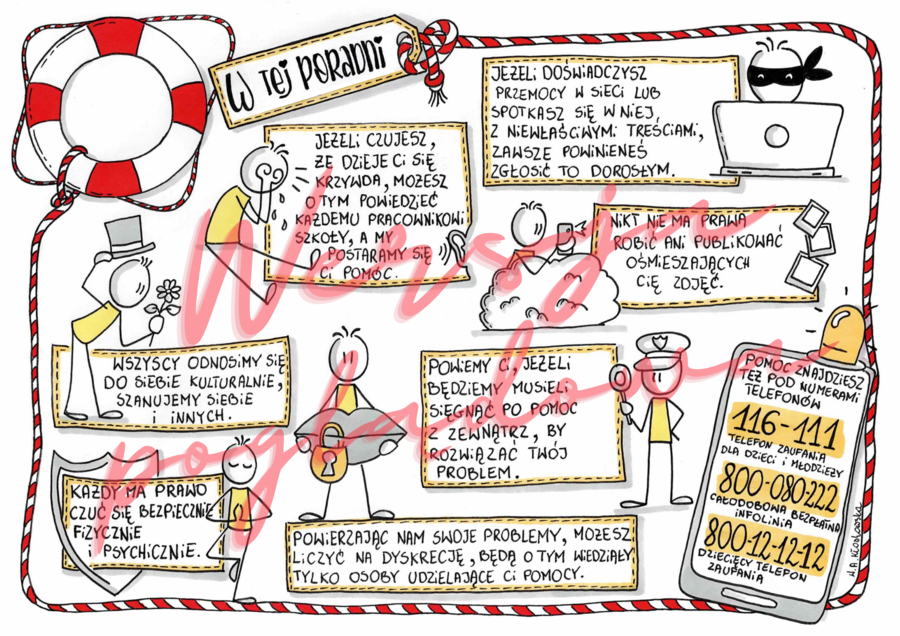 W TEJ PORADNI
JEŻELI DOŚWIADCZYSZ
PRZEMOCY W SIECI LUB
SPOTKASZ SIĘ W NIEJ
Z NIEWŁAŚCIWYMI TREŚCIAMI,
ZAWSZE POWINIENEŚ
ZGŁOSIĆ TO DOROSŁYM.
JEŻELI CZUJESZ,
ŻE DZIEJE CI SIĘ
KRZYWDA, MOŻESZ
O TYM POWIEDZIEĆ
KAŻDEMU PRACOWNIKOWI
SZKOŁY, A MY
POSTARAMY SIĘ
CI POMÓC.
NIKT NIE MA PRAWA
ROBIĆ ANI PUBLIKOWAĆ
OŚMIESZAJĄCYCH
CIĘ ZDJĘĆ.
WSZYSCY ODNOSIMY SIĘ
DO SIEBIE KULTURALNIE,
SZANUJEMY SIEBIE
I INNYCH.
POWIEMY CI, JEŻELI
BĘDZIEMY MUSIELI
SIĘGNĄĆ PO POMOC
Z ZEWNĄTRZ, BY
ROZWIĄZAĆ TWÓJ
PROBLEM.
POMOC ZNAJDZIESZ
TEŻ POD NUMERAMI
TELEFONÓW
116-111
TELEFON ZAUFANIA
DLA DZIECI I MŁODZIEŻY
800-080-222
CAŁODOBOWA BEZPŁATNA
INFOLINIA
800-12-12-12
DZIECIĘCY TELEFON
ZAUFANIA
KAŻDY MA PRAWO
CZUĆ SIĘ BEZPIECZNIE
FIZYCZNIE
I PSYCHICZNIE.
POWIERZAJĄC NAM SWOJE PROBLEMY, MOŻESZ
LICZYĆ NA DYSKRECJĘ, BĘDĄ O TYM WIEDZIAŁY
TYLKO OSOBY UDZIELAJĄCE CI POMOCY.
Wersja
poglądowa